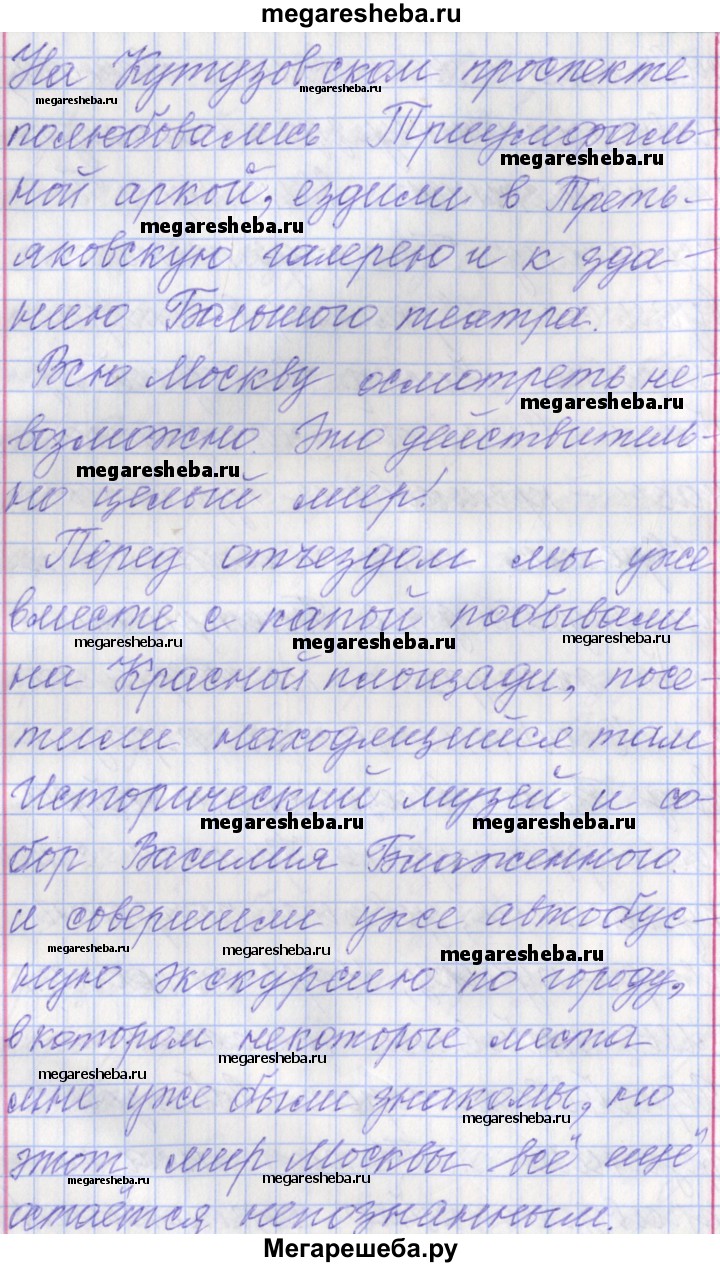 megaresheba.ru
На Кутузовском проспекте
megaresheba.ru
megaresheba.ru
полюбовались Триумфаль-
megaresheba.ru
ной аркой, ездили в Треть-
megaresheba.ru
яковскую галерею и к зда-
нию Большого театра.
Всю Москву осмотреть не-
megaresheba.ru
возможно. Это действитель-
megaresheba.ru
но целый мир!
Перед отъездом мы уже
вместе с папой побывали
megaresheba.ru
megaresheba.ru
megaresheba.ru
на Красной площади, посе-
тили находящийся там
Исторический музей и со-
megaresheba.ru
megaresheba.ru
бор Василия Блаженного.
и совершили уже автобус-
megaresheba.ru
megaresheba.ru
megaresheba.ru
ную экскурсию по городу,
в котором некоторые места
megaresheba.ru
megaresheba.ru
мне уже были знакомы, но
megaresheba.ru
этот мир Москвы всё ещё
megaresheba.ru
megaresheba.ru
остаётся непознанным.
Мегарешеба.ру